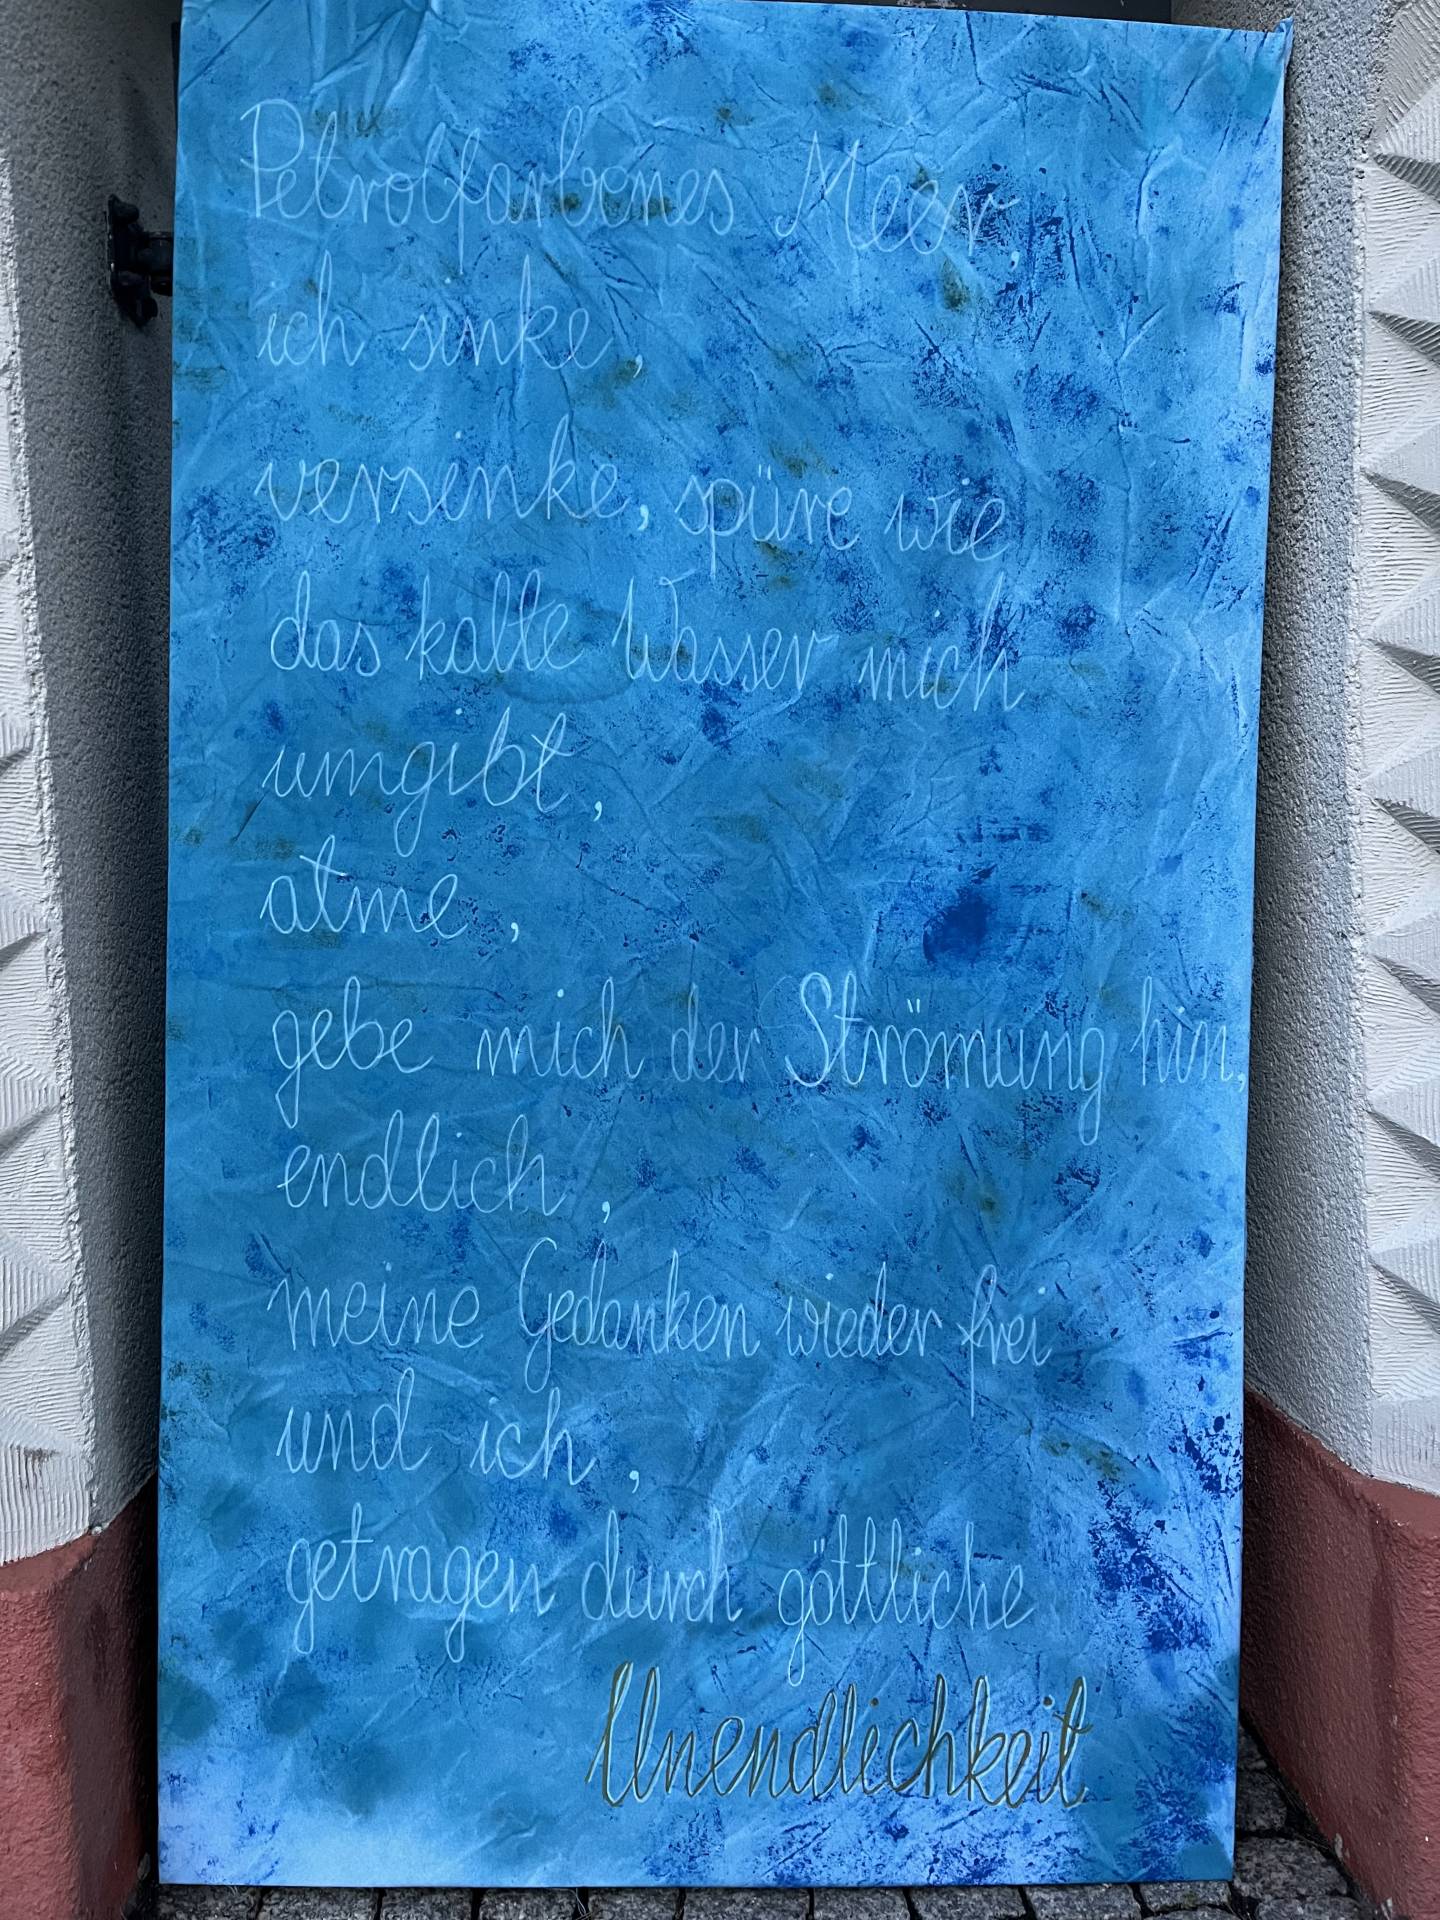 Petrolfarbenes Meer,
ich sinke,
versenke, spüre wie
das kalte Wasser mich
umgibt,
atme,
gebe mich der Strömung hin,
endlich,
meine Gedanken wieder frei
und ich,
getragen durch göttliche
Unendlichkeit